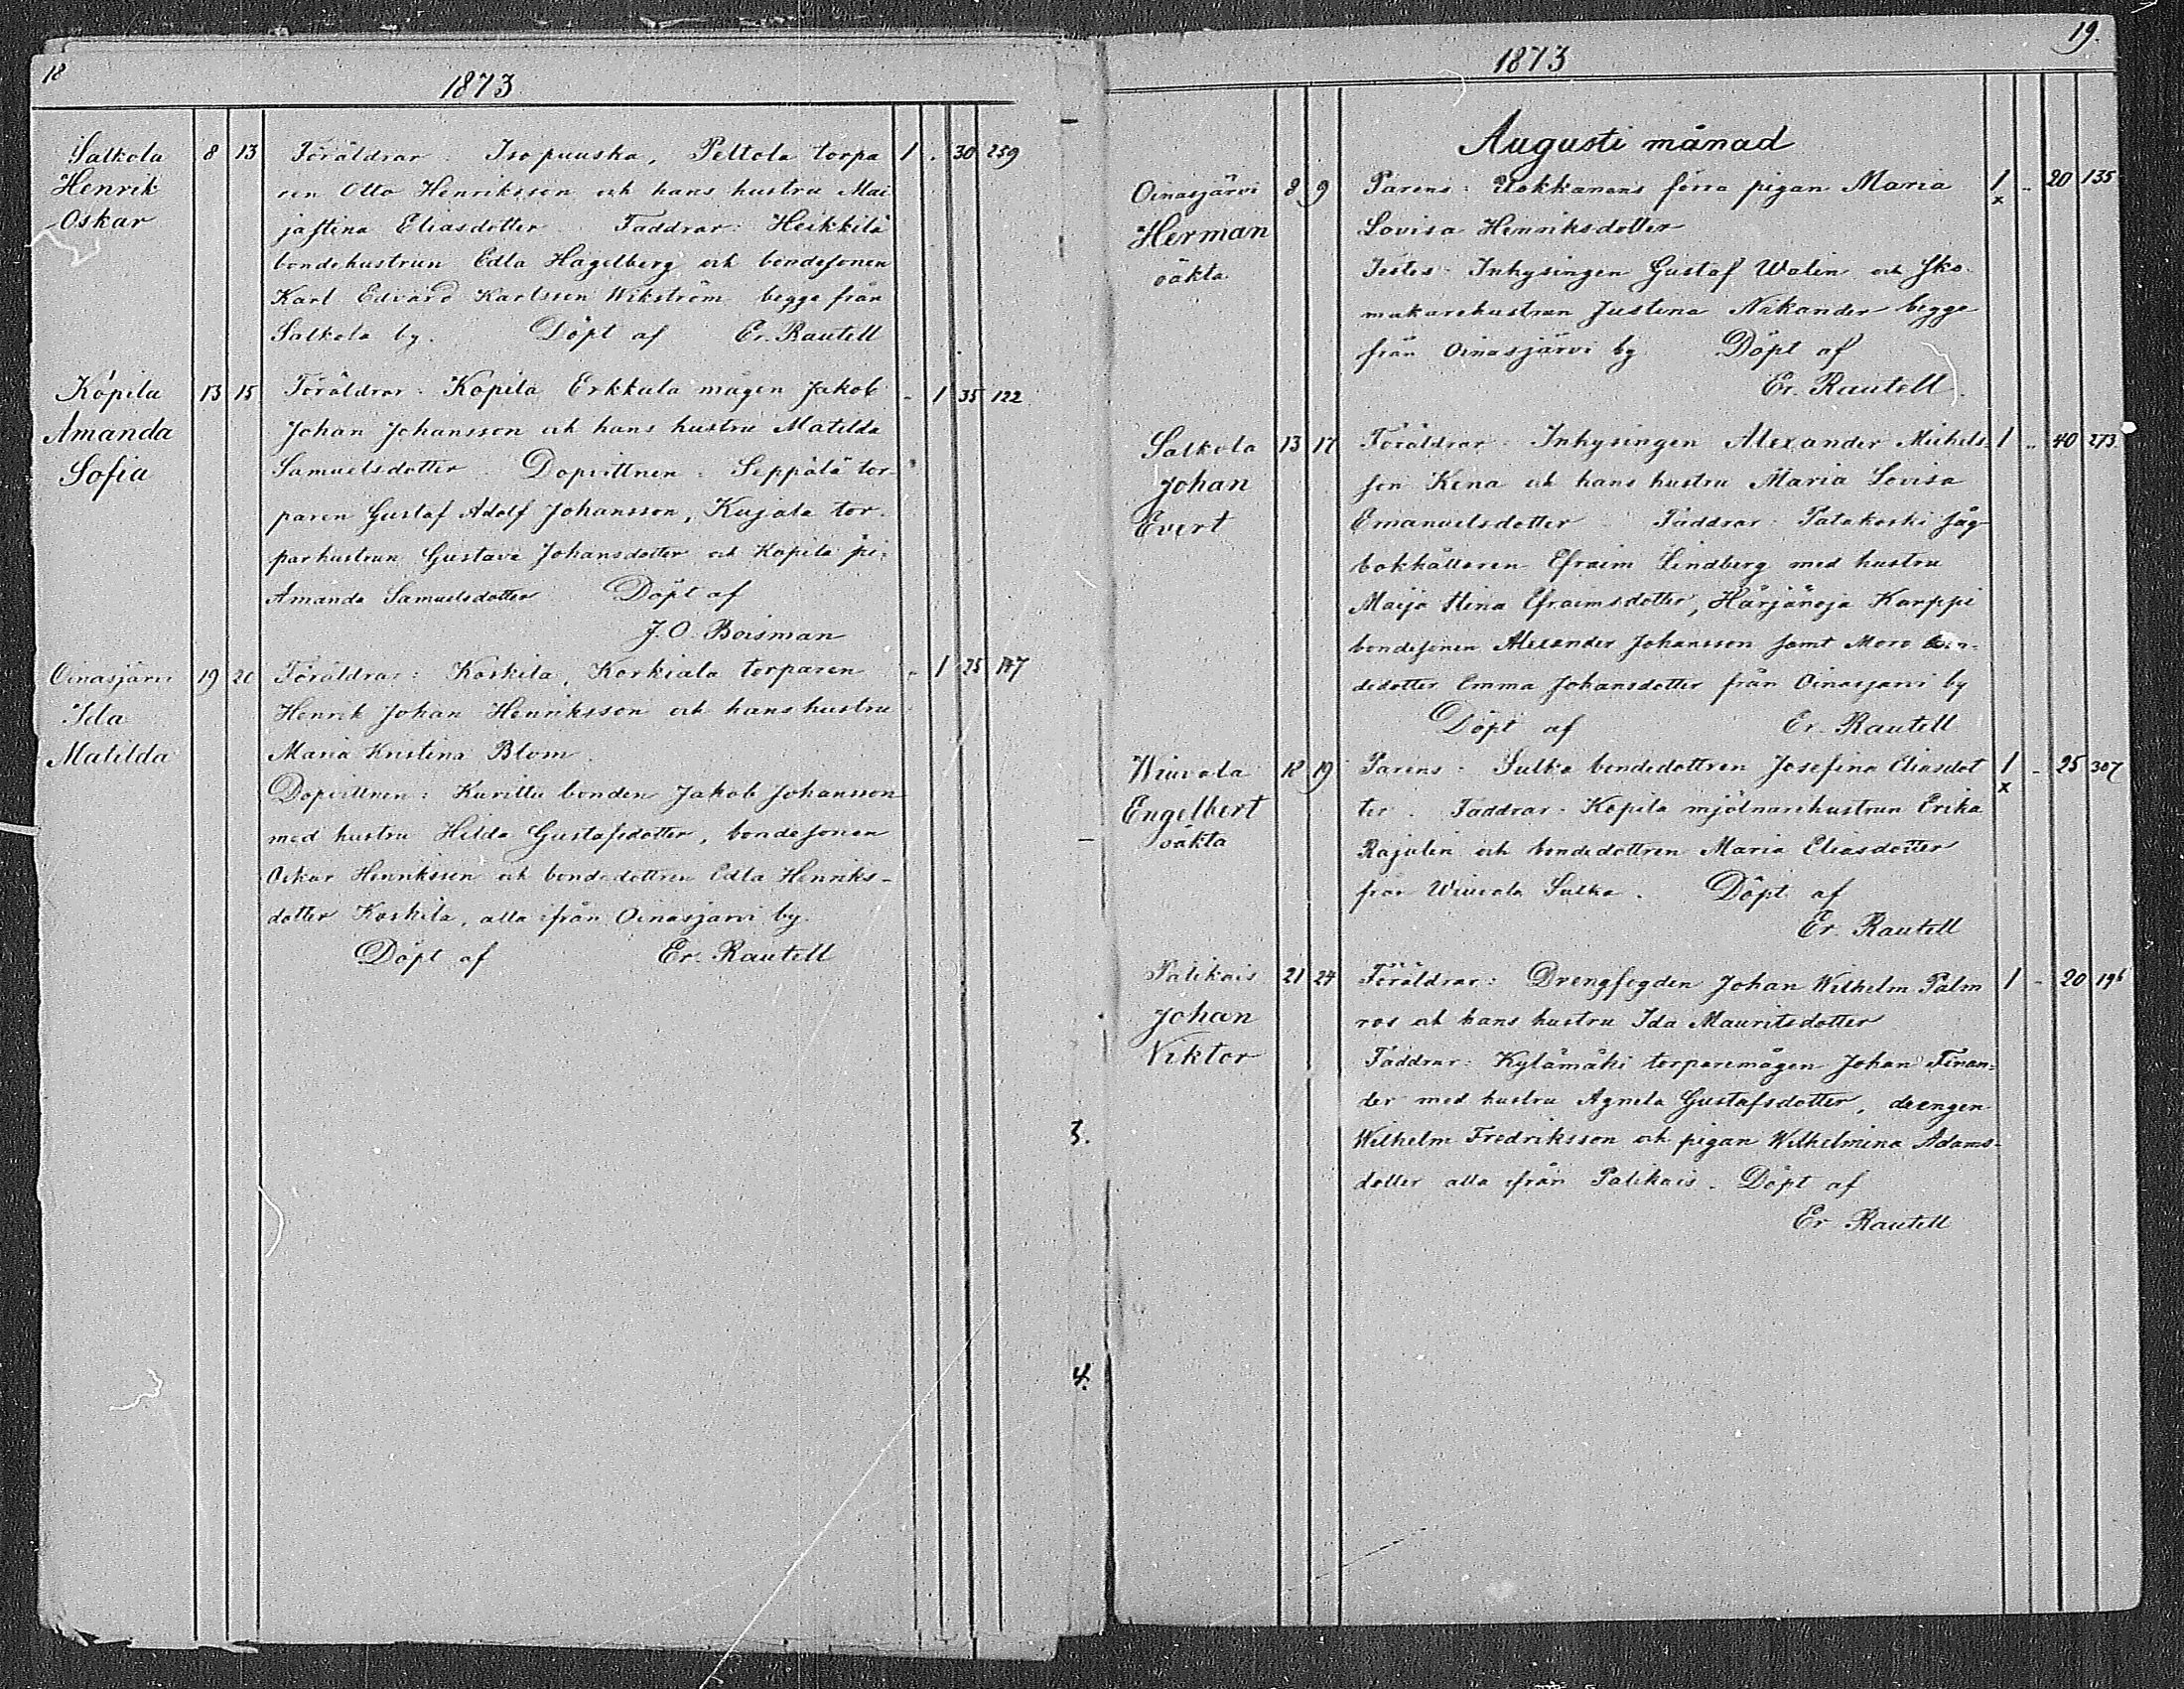 18
1873
Salkola 8 13 Föräldrar: Isopuuska, Peltola torpa 1 . 30 259
Henrik ren Otto Henriksson och hans hustru Mai
Oskar jastina Eliasdotter. Faddrar: Heikkilä
bondehustrun Edla Hagelberg och bondesonen
Karl Edvard Karlsson Wikström begge från
Salkola by. Döpt af Er. Rautell
Köpila 13 15 Föräldrar: Köpila Erkkala mågen Jakob - 1 35 122
Amanda Johan Johansson och hans hustru Matilda
Sofia Samuelsdotter. Dopvittnen: Seppälä tor-
paren Gustaf Adolf Johansson, Kujala tor-
parhustrun Gustava Johansdotter och Köpila pi.
Amanda Samuelsdotter Döpt af
J. O. Boisman
Oinasjärvi 19 20 Föräldrar: Koskila, Korkiala torparen - 1 25
Ida Henrik Johan Henriksson och hans hustru
Matilda Maria Kristina Blom.
Dopvittnen: Kurittu bonden Jakob Johansson
med hustru Hilda Gustafsdotter, bondesonen
Oskar Henriksson och bondedottren Edla Henriks-
dotter Koskila, alla ifrån Oinasjärvi by.
Döpt af Er. Rautell
3.
4.
19.
1873
Augusti månad
Oinasjärvi 8 9 Parens: Uokkanans förra pigan Maria 1 - 20 135
x
Herman Lovisa Henriksdotter
oäkta Testes: Inhysingen Gustaf Walin och sko-
makarehustrun Justina Nikander begge
från Oinasjärvi by Döpt af
Er. Rautell.
Salkola 13 17 Föräldrar: Inhysingen Alexander Michels- 1 - 40 273
Johan son Kena och hans hustru Maria Lovisa
Evert Emanuelsdotter. Faddrar: Patakoski såg-
bokhållaren Efraim Lindberg med hustru
Maija Stina Efraimsdotter, Härjänoja Karppi
bondesonen Alexander Johansson samt Moro bon-
dedotter Emma Johansdotter från Oinasjärvi by
Döpt af Er. Rautell
Wiuvala 18 19 Parens: Sulka bondedottren Josefina Eliasdot 1 - 25 307
x
Engelbert ter. Faddrar: Köpila mjölnarehustrun Erika
oäkta Rajalin och bondedottren Maria Eliasdotter
från Wiuvala Sulka. Döpt af
Er. Rautell
Palikais 21 24 Föräldrar: Drengfogden Johan Wilhelm Palm 1 - 20 196
Johan ros och hans hustru Ida Mauritsdotter
Viktor Faddrar: Kylämäki torparemågen Johan Finan-
der med hustru Agneta Gustafsdotter, drengen
Wilhelm Fredriksson och pigan Wilhelmina Adams-
dotter alla ifrån Palikais. Döpt af
Er. Rautell